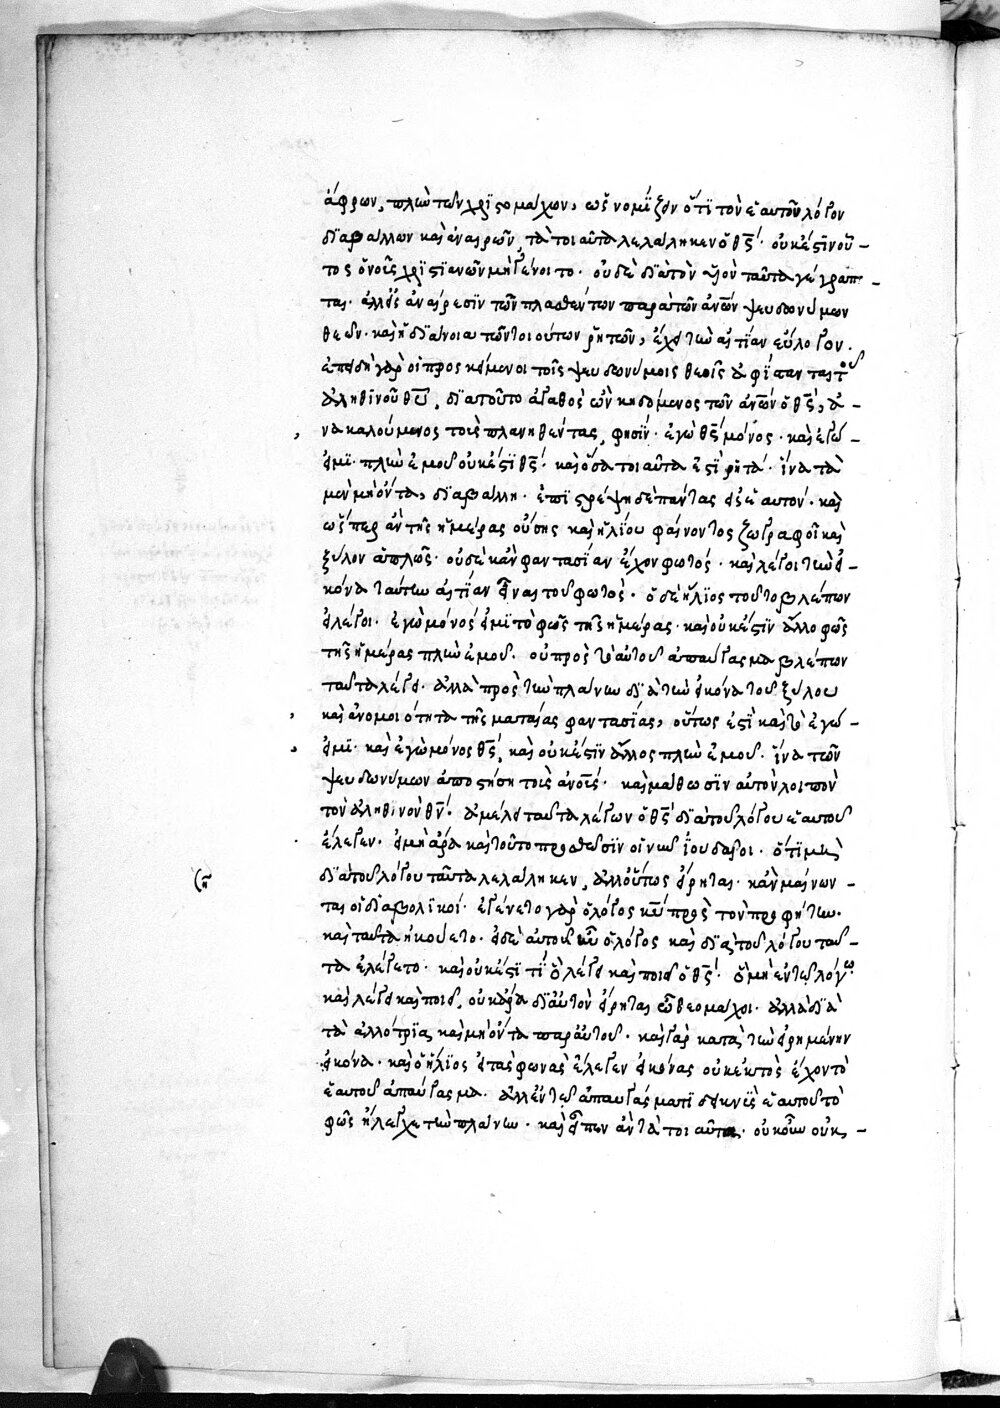 ἄφρων, πλὴν τῶν χριστομάχων, ὡς νομίζειν ὅτι τὸν ἑαυτοῦ λόγον
διαβάλλων καὶ ἀναιρῶν, τὰ τοιαῦτα λελάληκεν ὁ θς· οὐκ ἔστιν οὗ-
τος ὁ νοῦς χριστιανῶν μὴ γένοιτο· οὐδὲ διὰ τὸν υἱὸν ταῦτα γέγραπ-
ται· ἀλλ' εἰς ἀναίρεσιν τῶν πλασθέντων παρὰ τῶν ἀνων ψευδωνύμων
θεῶν· καὶ ἡ διάνοια τῶν τοιούτων ῥητῶν, ἔχει τὴν αἰτίαν εὔλογον.
ἐπειδὴ γὰρ οἱ προσκείμενοι τοῖς ψευδωνύμοις θεοῖς ἀφίπανται τοῦ
ἀληθινοῦ θυ, διὰ τοῦτο ἀγαθὸς ὢν κηδόμενος τῶν ἀνων ὁ θς, ἀ-
νακαλούμενος τοὺς πλανηθέντας, φησίν· ἐγὼ θς μόνος· καὶ ἐγώ-
εἰμι· πλὴν ἐμοῦ οὐκ ἔστι θς· καὶ ὅσα τοιαῦτά ἐστι ῥητά· ἵνα τὰ
μὲν μὴ ὄντα, διαβάλλη· ἐπιστρέψη δὲ πάντας εἰς ἑαυτόν· καὶ
ὥσπερ ἂν τῆς ἡμέρας οὔσης καὶ ἡλίου φαίνοντος ζωγραφοῖ καὶ
ξύλον ἁπλῶς· οὐδὲ κἂν φαντασίαν ἔχον φωτός· καὶ λέγοι τὴν εἰ-
κόνα ταύτην αἰτίαν εἶναι τοῦ φωτός· ὁ δὲ ἥλιος τοῦτο βλέπων
εἰ λέγοι· ἐγὼ μόνος εἰμὶ τὸ φῶς τῆς ἡμέρας· καὶ οὐκ ἔστιν ἄλλο φῶς
τῆς ἡμέρας πλὴν ἐμοῦ· οὐ πρὸς τὸ αὐτοῦ ἀπαύγασμα βλέπων
ταῦτα λέγει· ἀλλὰ πρὸς τὴν πλάνην διὰ τὴν εἰκόνα τοῦ ξύλου
καὶ ἀνομοιότητα τῆς ματαίας φαντασίας, οὕτως ἐστὶ καὶ τὸ ἐγώ-
εἰμι· καὶ ἐγὼ μόνος θς, καὶ οὐκ ἔστιν ἄλλος πλὴν ἐμοῦ· ἵνα τῶν
ψευδωνύμων ἀποστήση τοὺς ἀνους· καὶ μάθωσιν αὐτὸν λοιπὸν
τὸν ἀληθινὸν θν· ἀμέλει ταῦτα λέγων ὁ θς διὰ τοῦ λόγου ἑαυτοῦ
ἔλεγεν· εἰ μὴ ἄρα καὶ τοῦτο προσθῶσιν οἱ νῦν ἰουδαῖοι· ὅτι μὴ
διὰ τοῦ λόγου ταῦτα λελάληκεν, ἀλλ' οὕτως εἴρηται· κἂν μαίνων-
ται οἱ διαβολικοί· ἐγένετο γὰρ ὁ λόγος κυ πρὸς τὸν προφήτην·
καὶ ταῦτα ἠκούετο· εἰ δὲ αὐτοῦ ἦν ὁ λόγος καὶ διὰ τοῦ λόγου ταῦ-
τα ἐλέγετο· καὶ οὐκ ἔστι τι ὃ λέγει καὶ ποιεῖ ὁ θς· ὃ μὴ ἐν τῶ λόγω
καὶ λέγει καὶ ποιεῖ, οὐκ ἄρα δι' αὐτὸν εἴρηται ὦ θεομάχοι· ἀλλὰ διὰ
τὰ ἀλλότρια, καὶ μὴ ὄντα παρ' αὐτοῦ· καὶ γὰρ κατὰ τὴν εἰρημένην
εἰκόνα· καὶ ὁ ἥλιος εἰ τὰς φωνὰς ἔλεγεν ἐκείνας οὐκ ἐκτὸς ἔχον τὸ
ἑαυτοῦ ἀπαύγασμα· ἀλλ' ἐν τῶ ἀπαυγάσματι δεικνὺς ἑαυτοῦ τὸ
φῶς ἤλεγχε τὴν πλάνην· καὶ εἶπεν ἂν τὰ τοιαῦτα· οὐκοῦν οὐκ-